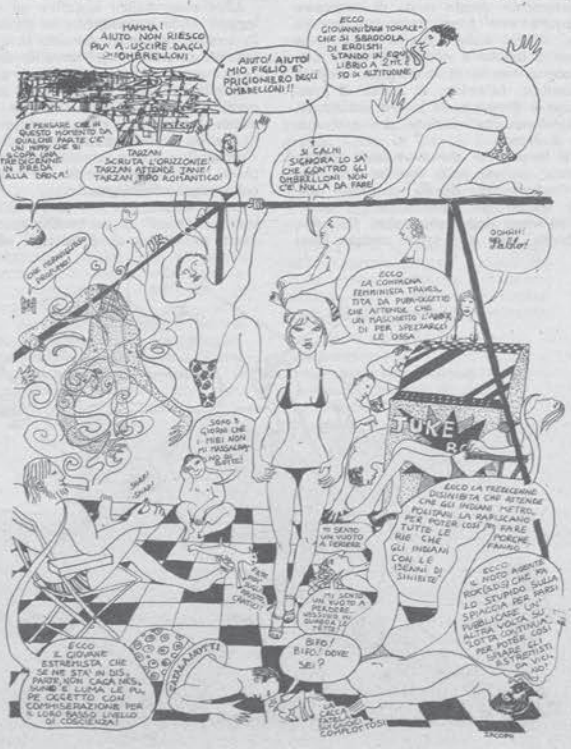 MAMMA!
AIUTO NON RIESCO
PIÙ A USCIRE DAGLI
OMBRELLONI
AIUTO! AIUTO!
MIO FIGLIO E'
PRIGIONIERO DEGLI
OMBRELLONI!!
ECCO
GIOVANNI TONALE
CHE SI SBRODOLA
DI EROISMI
STANDO IN EQUI
LIBRIO A 2 MT. E
50 DI ALTITUDINE
E PENSARE CHE IN
QUESTO MOMENTO DA
QUALCHE PARTE C'E'
UN HIPPY CHE SI
SCOPA UNA
TREDICENNE
IN PREDA
ALLA DROGA!
TARZAN
SCRUTA L'ORIZZONTE!
TARZAN ATTENDE JANE!
TARZAN TIPO ROMANTICO!
SI CALMI
SIGNORA LO SA'
CHE CONTRO GLI
OMBRELLONI NON
C'E' NULLA DA FARE!
CHE MERAVIGLIOSO
PROFUMO!
OOHHH!
Pablo!
ECCO
LA COMPAGNA
FEMMINISTA TRAVES,
TITA DA PUPA-OGGETTO
CHE ATTENDE CHE
UN MASCHIETTO L'ABBOR
DI PER SPEZZARGLI
LE OSSA
JUKE
BO
SONO 3
GIORNI CHE
I MIEI NON
MI MASSACRA,
NO DI
BOTTE!
ECCO LA TREDICENNE
DISINIBITA CHE ATTENDE
CHE GLI INDIANI METRO,
POLITANI LA RAPISCANO
PER POTER COSI' FARE
TUTTE LE PORCHE,
RIE CHE FANNO
GLI INDIANI
CON LE
16ENNI DI
SINIBITE
MI SENTO
UN VUOTO
A PERDERE
MI SENTO
UN VUOTO A
PERDERE
ECCO
IL NOTO AGENTE
ROX (SDS) CHE FA
LO STUPIDO SULLA
SPIAGGIA PER FARSI
PUBBLICARE UN'
ALTRA VOLTA SU
"LOTTA CONTINUA"
PER POTER COSI'
SPIARE GLI
ESTREMISTI
DA VICI,
NO!
ECCO
IL GIOVANE
ESTREMISTA CHE
SE NE STA' IN DIS,
PARTE, NON CAGA NES,
SUNO E LUMA LE PU,
PE OGGETTO CON
COMMISERAZIONE PER
IL LORO BASSO LIVELLO
DI COSCIENZA!
CATALANOTTI
BIFO!
BIFO! DOVE
SEI?
LA
CACCA
COMPLOTTOSI